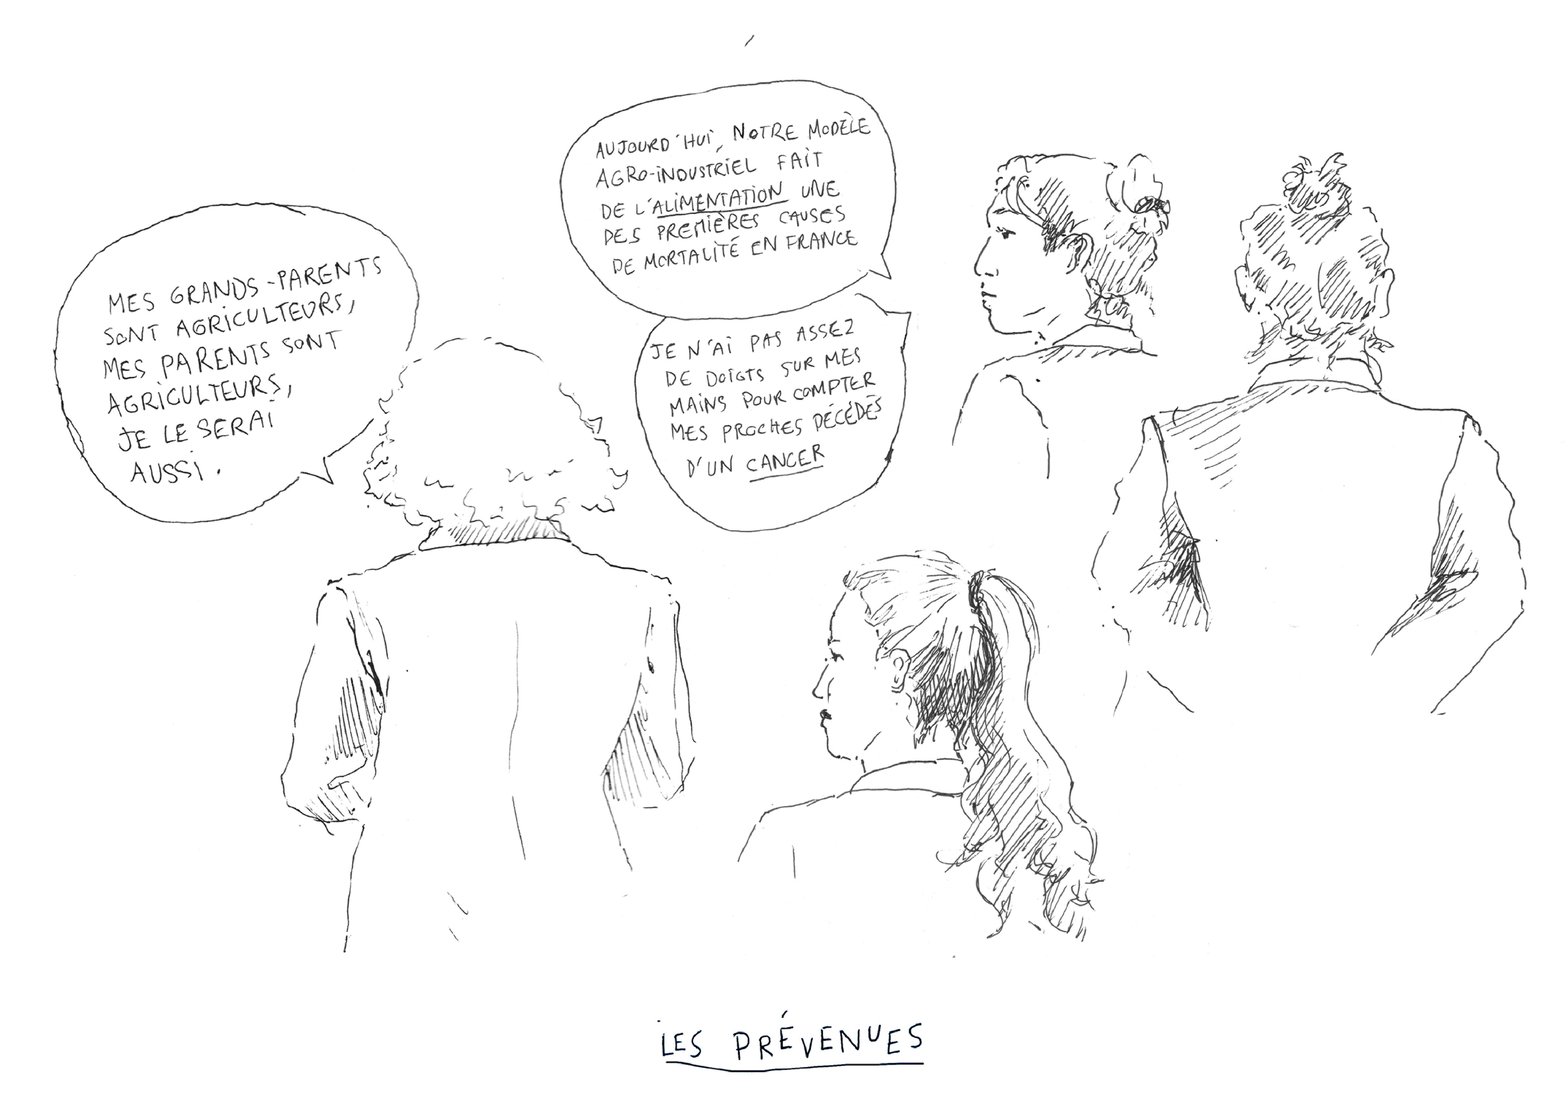 MES GRANDS-PARENTS
SONT AGRICULTEURS,
MES PARENTS SONT
AGRICULTEURS,
JE LE SERAI
AUSSI.
AUJOURD'HUI, NOTRE MODÈLE
AGRO-INDUSTRIEL FAIT
DE L'ALIMENTATION UNE
DES PREMIÈRES CAUSES
DE MORTALITÉ EN FRANCE
JE N'AI PAS ASSEZ
DE DOIGTS SUR MES
MAINS POUR COMPTER
MES PROCHES DÉCÉDÉS
D'UN CANCER
LES PRÉVENUES